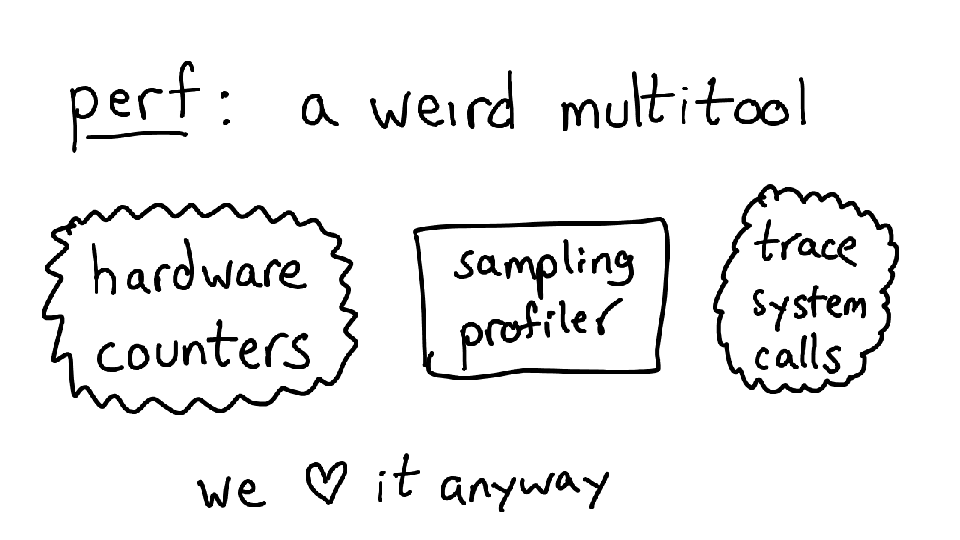 perf: a weird multitool
hardware
counters
sampling
profiler
trace
system
calls
we ♡ it anyway